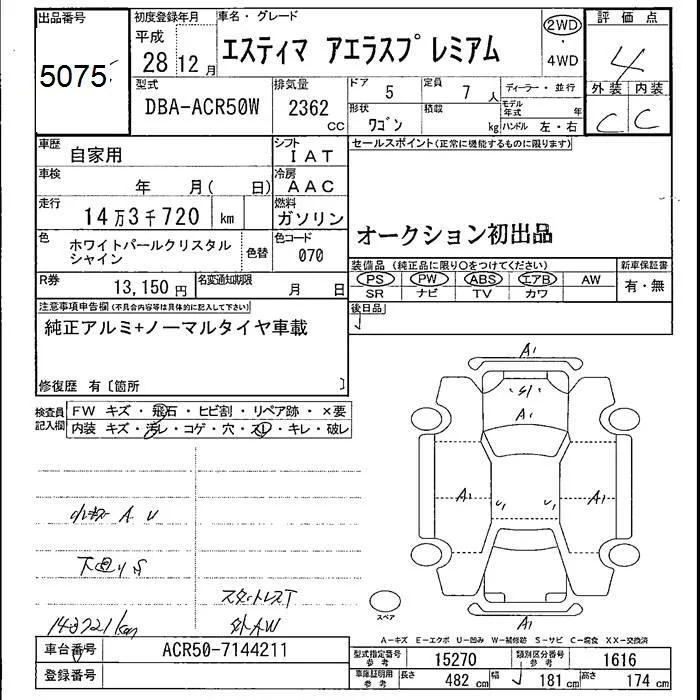 出品番号
5075
初度登録年月
平成
28 12月
車名・グレード
エスティマ アエラスプレミアム
2WD
・
4WD
評価点
4
外装 内装
C C
型式
DBA-ACR50W
排気量
2362
CC
ドア
5
定員
7 人
ディーラー・並行
形状
ワゴン
積載
kg
モデル年式 年
ハンドル 左・右
車歴
自家用
シフト
IAT
車検
年 月( 日)
冷房
AAC
走行
14万3千720 km
燃料
ガソリン
色
ホワイトパールクリスタル
シャイン
色替
色コード
070
R券
13,150円
名変通知期限
月 日
セールスポイント(正常に機能するものに限ります)
オークション初出品
装備品(純正品に限り○をつけてください)
PS PW ABS エアB AW
SR ナビ TV カワ
新車保証書
有・無
後日品
注意事項申告欄(不具合内容等は具体的に記入して下さい)
純正アルミ+ノーマルタイヤ車載
修復歴 有〔箇所 〕
検査員
記入欄
FW キズ・飛石・ヒビ割・リペア跡・×要
内装 キズ・汚レ・コゲ・穴・スレ・キレ・破レ
小キズ A U
下回り S
スタットレスT
外AW
143721km
A1
A1
A1
A1
A1
スペア
A-キズ E-エクボ U-凹み W-補修跡 S-サビ C-腐食 XX-交換済
車台番号
ACR50-7144211
登録番号
型式指定番号
参考
15270
類別区分番号
参考
1616
車庫証明用
参考
長さ
482 cm
幅
181 cm
高さ
174 cm